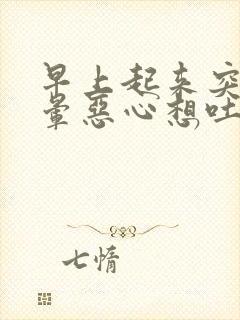 早上起来突
晕恶心想吐
七情